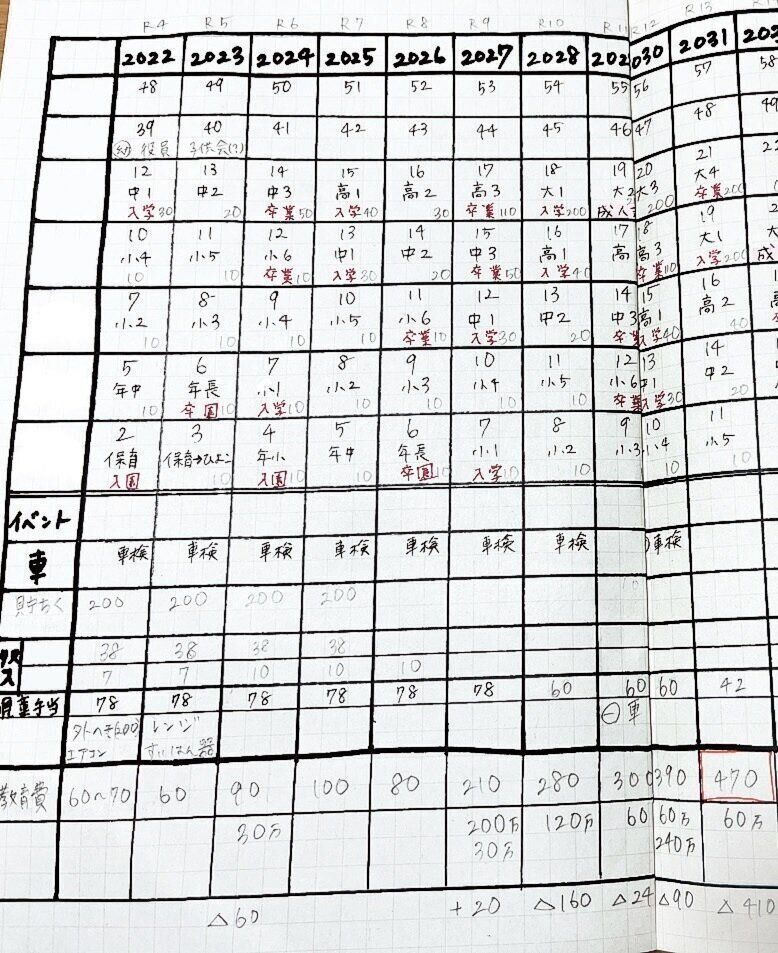 R4 R5 R6 R7 R8 R9 R10 R11 R12 R13
2022 2023 2024 2025 2026 2027 2028 202 030 2031 203
48 49 50 51 52 53 54 55 56 57 58
39 40 41 42 43 44 45 46 47 48 49
幼 役員 子供会(?)
12 13 14 15 16 17 18 19 20 21 22
中1 中2 中3 高1 高2 高3 大1 大2 大3 大4
入学30 20 卒業50 入学40 30 卒業110 入学200 成人 200 卒業200
10 11 12 13 14 15 16 17 18 19 2
小4 小5 小6 中1 中2 中3 高1 高 高3 大1 大
10 10 卒業10 入学30 20 卒業50 入学40 卒業110 入学200 成
7 8 9 10 11 12 13 14 15 16 1
小2 小3 小4 小5 小6 中1 中2 中3 高1 高2
10 10 10 10 卒業10 入学30 20 卒業 入学40 40
5 6 7 8 9 10 11 12 13 14
年中 年長 小1 小2 小3 小4 小5 小6 中1 中2
10 卒園10 入学10 10 10 10 10 卒業 入学30 20
2 3 4 5 6 7 8 9 10 11
保育 保育→ひよこ 年小 年中 年長 小1 小2 小3 小4 小5
入園 10 入園10 10 卒園10 入学10 10 10 10
イベント
車 車検 車検 車検 車検 車検 車検 車検 車検
貯ちく 200 200 200 200
38 38 38 38
ス 7 7 10 10 10
児童手当 78 78 78 78 78 78 60 60 60 42
外ヘキ(200) レンジ ㊀車
エアコン すいはん器
教育費 60〜70 60 90 100 80 210 280 300 390 470
30万 200万 120万 60 60万 60万
30万 240万
△60 +20 △160 △24 △90 △410